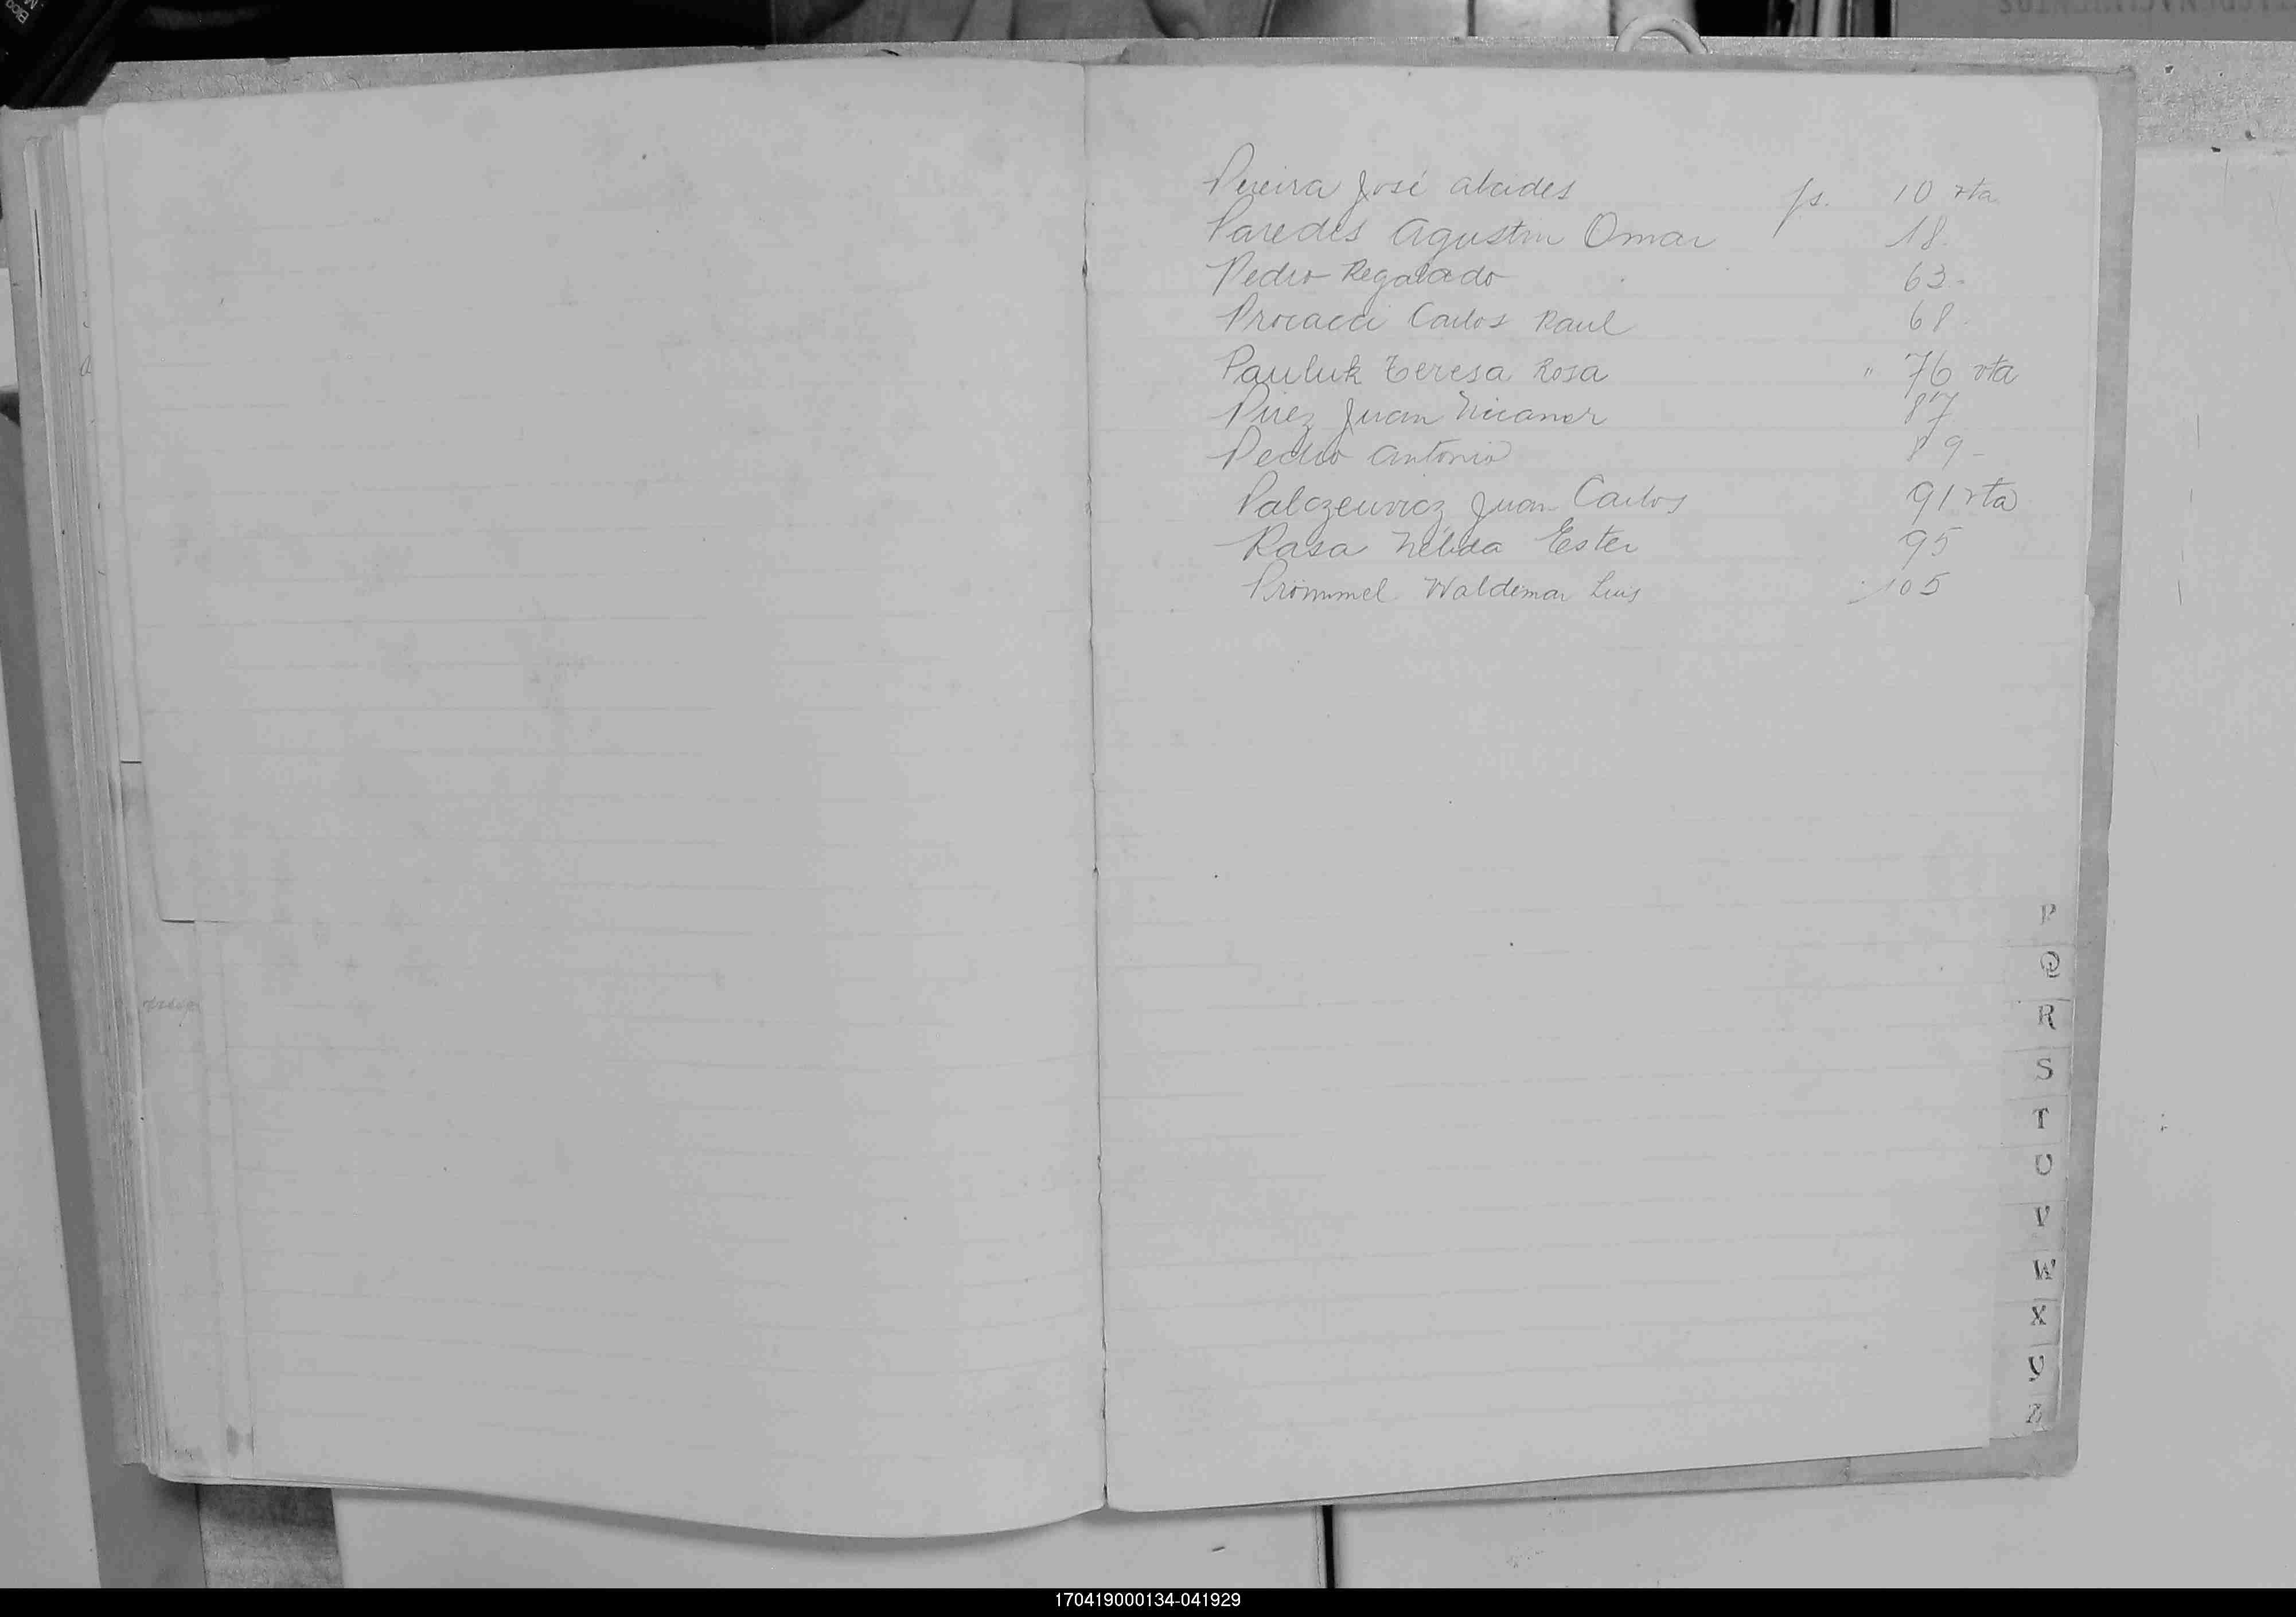 Pereira José Alcides fs. 10 vta
Paredes Agustin Omar 18.
Pedro Regalado 63.-
Procacci Carlos Raul 68.
Pauluk Teresa Rosa " 76 vta
Pirez Juan Nicanor 87
Pedro Antonio 89-
Palczewicz Juan Carlos 91 vta
Rasa Nélida Ester 95
Prömmel Waldemar Luis 105
P
Q
R
S
T
U
V
W
X
Y
Z
170419000134-041929